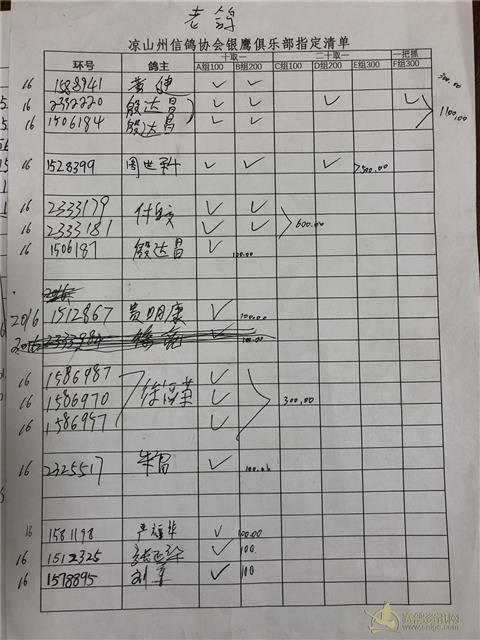 老鸽
凉山州信鸽协会银鹰俱乐部指定清单
环号 鸽主 十取一 二十取一 一把抓
A组100 B组200 C组100 D组200 E组300 F组300
16 1588941 黄健 ✓ ✓ 300.00
16 2392220 殷达昌 ✓ ✓ ✓ ✓
16 1506184 殷达昌 ✓ ✓ 1100.00
16 1528399 周世 ✓ ✓ ✓ 500.00
16 2333179 付 ✓ ✓
16 2333181 ✓ ✓ 600.00
16 1506187 殷达昌 ✓ 100.00
2016 1512867 贾明康 ✓ 100.00
2016 ✓ 100.00
16 1586987 ✓
16 1586970 徐 ✓ 300.00
16 1586957 ✓
16 2325517 ✓ 100.00
16 1581198 严福华 ✓ 100.00
16 1512325 张 ✓ 100.
16 1578895 刘军 ✓ 100
赛鸽资讯网
www.saige.com